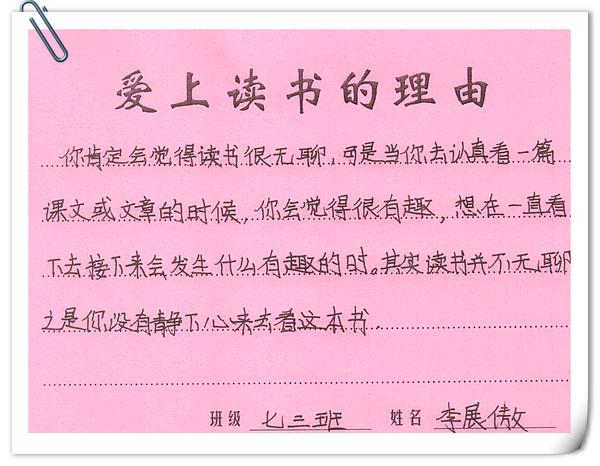 爱上读书的理由
你肯定会觉得读书很无聊,可是当你去认真看一篇
课文或文章的时候,你会觉得很有趣,想在一直看
下去接下来会发生什么有趣的时。其实读书并不无聊
之是你没有静下心来去看这本书。
班级 七三班 姓名 李展傲